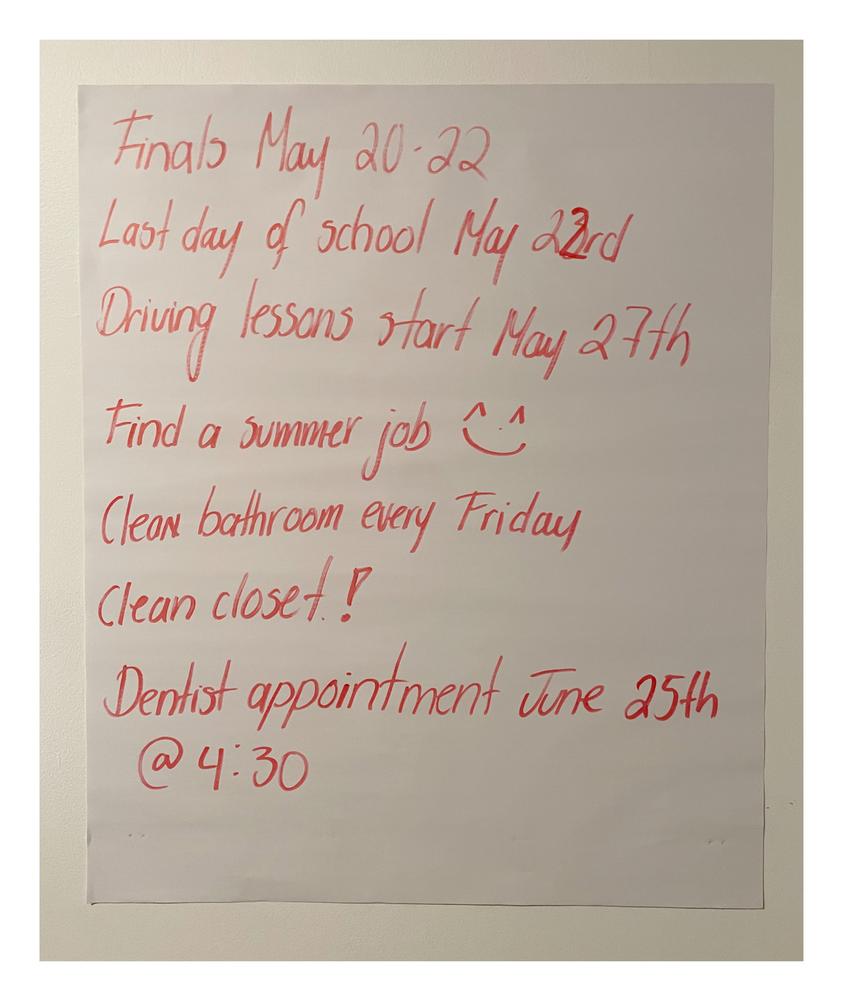 Finals May 20-22
Last day of school May 23rd
Driving lessons start May 27th
Find a summer job
Clean bathroom every Friday
Clean closet!
Dentist appointment June 25th
@ 4:30